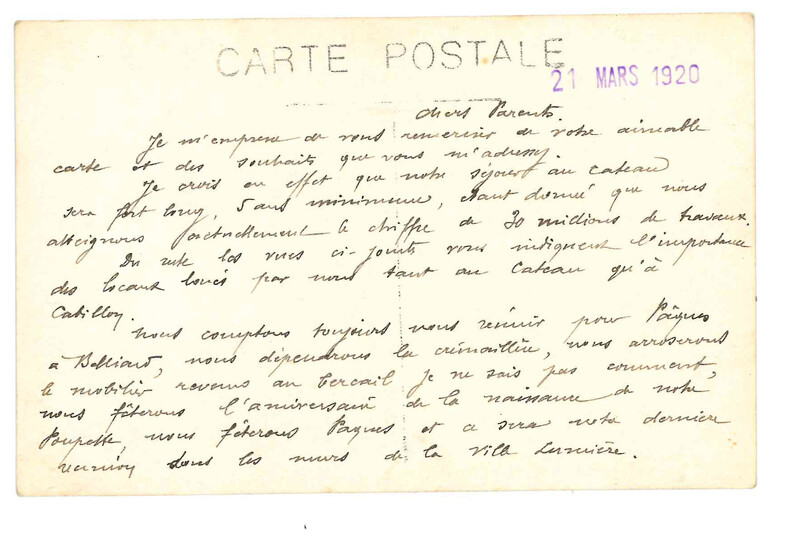 CARTE POSTALE
21 MARS 1920
chers Parents.
Je m'empresse de vous remercier de votre aimable
carte et des souhaits que vous m'adressez.
Je crois en effet que notre séjour au Cateau
sera fort long, 5 ans minimum, étant donné que nous
atteignons actuellement le chiffre de 30 millions de travaux.
Du reste les vues ci-joints vous indiquent l'importance
des locaux loués par nous tant au Cateau qu'à
Catillon.
Nous comptons toujours nous réunir pour Pâques
à Belliard, nous dépendrons la crémaillère, nous arroserons
le mobilier revenu au bercail je ne sais pas comment,
nous fêterons l'aniversaire de la naissance de notre
Poupette, nous fêterons Paques et ce sera notre dernière
réunion dans les murs de la Ville Lumière.